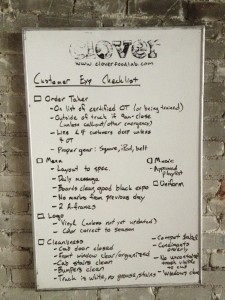 clover
www.cloverfoodlab.com
Customer Exp Checklist
□ Order Taker
- On list of certified OT (or being trained)
- Outside of truck if 8am-close
(unless callout/other emergency)
- Line 4 customers deep unless
4 OT
- Proper gear: Square, iPod, belt
□ Menu
- Layout to spec.
- Daily message
- Boards clean, good black expo
- No marks from previous day
- 2 A-frames
□ Music:
- Approved
playlist
□ Uniform
□ Logo
- Vinyl (unless not yet updated)
- Color correct to season
□ Cleanliness
- Cab door closed
- Front window clear/organized
- Cab stairs clean
- Bumpers clean
- Truck is white, no grease, stains
- Compost
- Condiments
orderly
- No
trash visible
- Windows clean